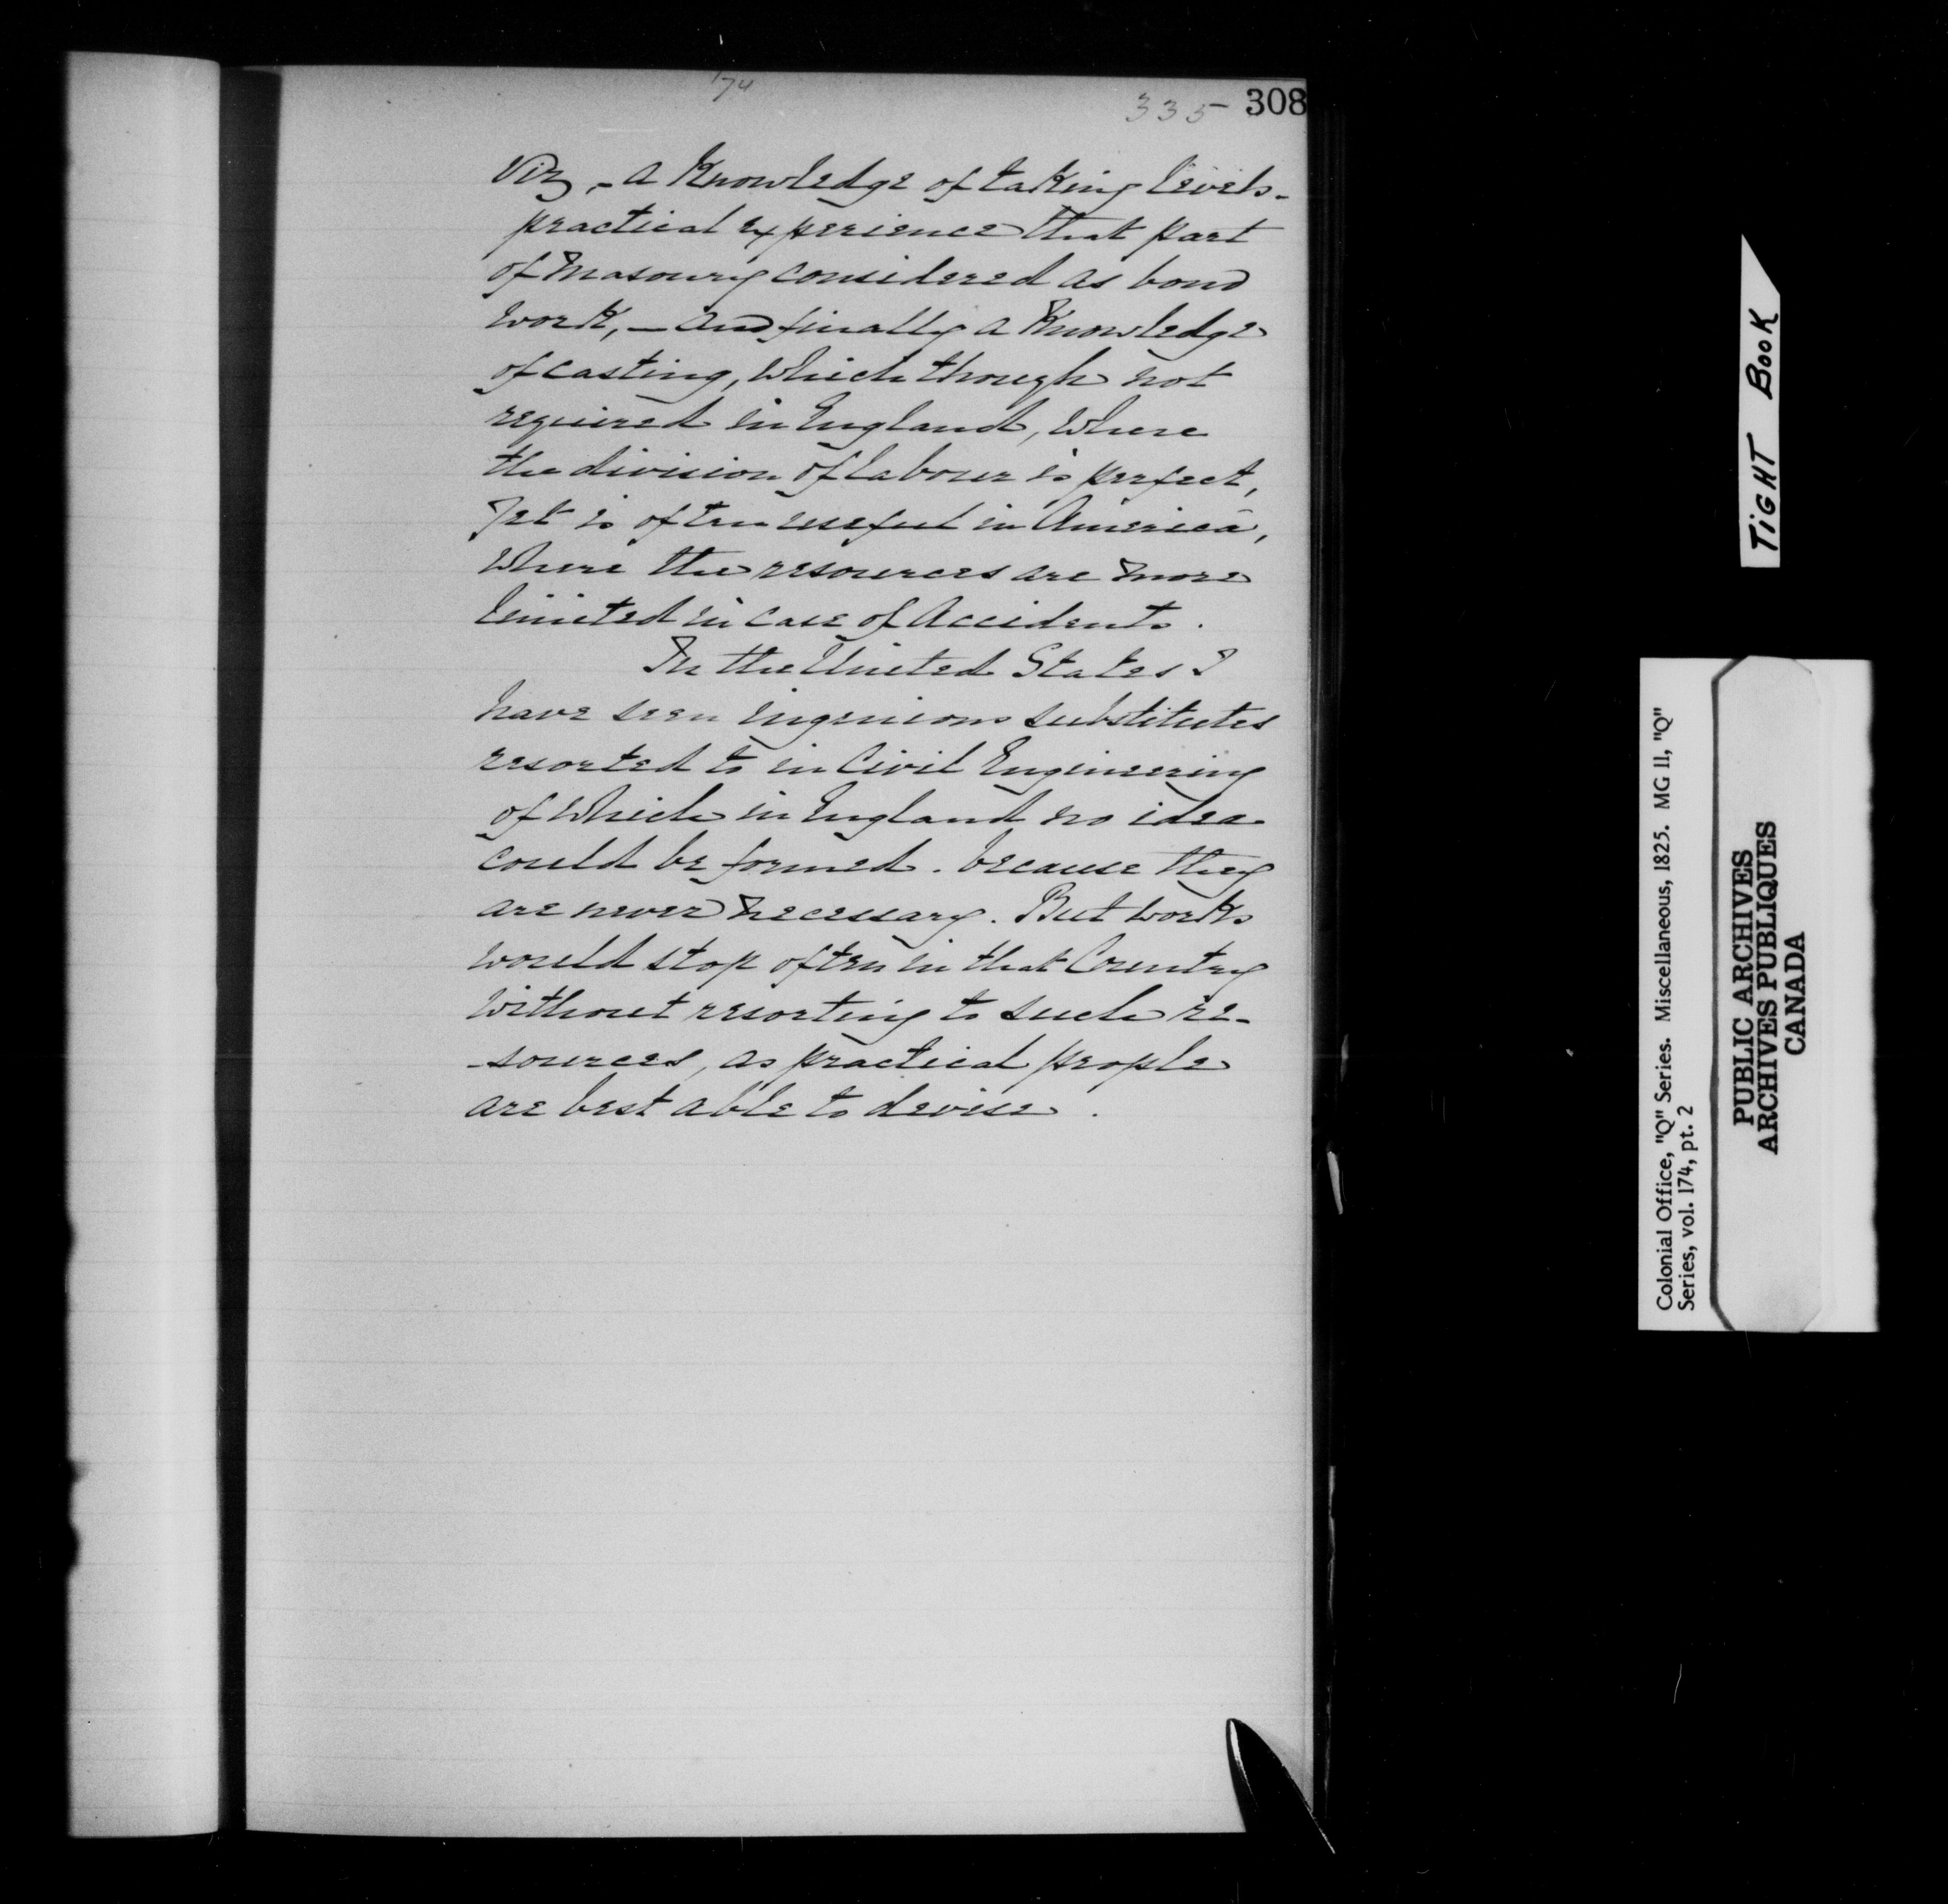 174
335 308
Viz, - a Knowledge of taking levels -
practical experience that part
of Masonry considered as bond
work, - and finally a Knowledge
of casting, which though not
required in England, where
the division of labour is perfect,
Yet is often useful in America,
Where the resources are more
limited in case of Accidents.
In the United States I
have seen ingenious substitutes
resorted to in Civil Engineering
of which in England no idea
could be formed. because they
are never necessary. But works
would stop often in that Country
without resorting to such re-
-sources, as practical people
are best able to devise.
TIGHT BOOK
Colonial Office, "Q" Series. Miscellaneous, 1825. MG 11, "Q"
Series, vol. 174, pt. 2
PUBLIC ARCHIVES
ARCHIVES PUBLIQUES
CANADA